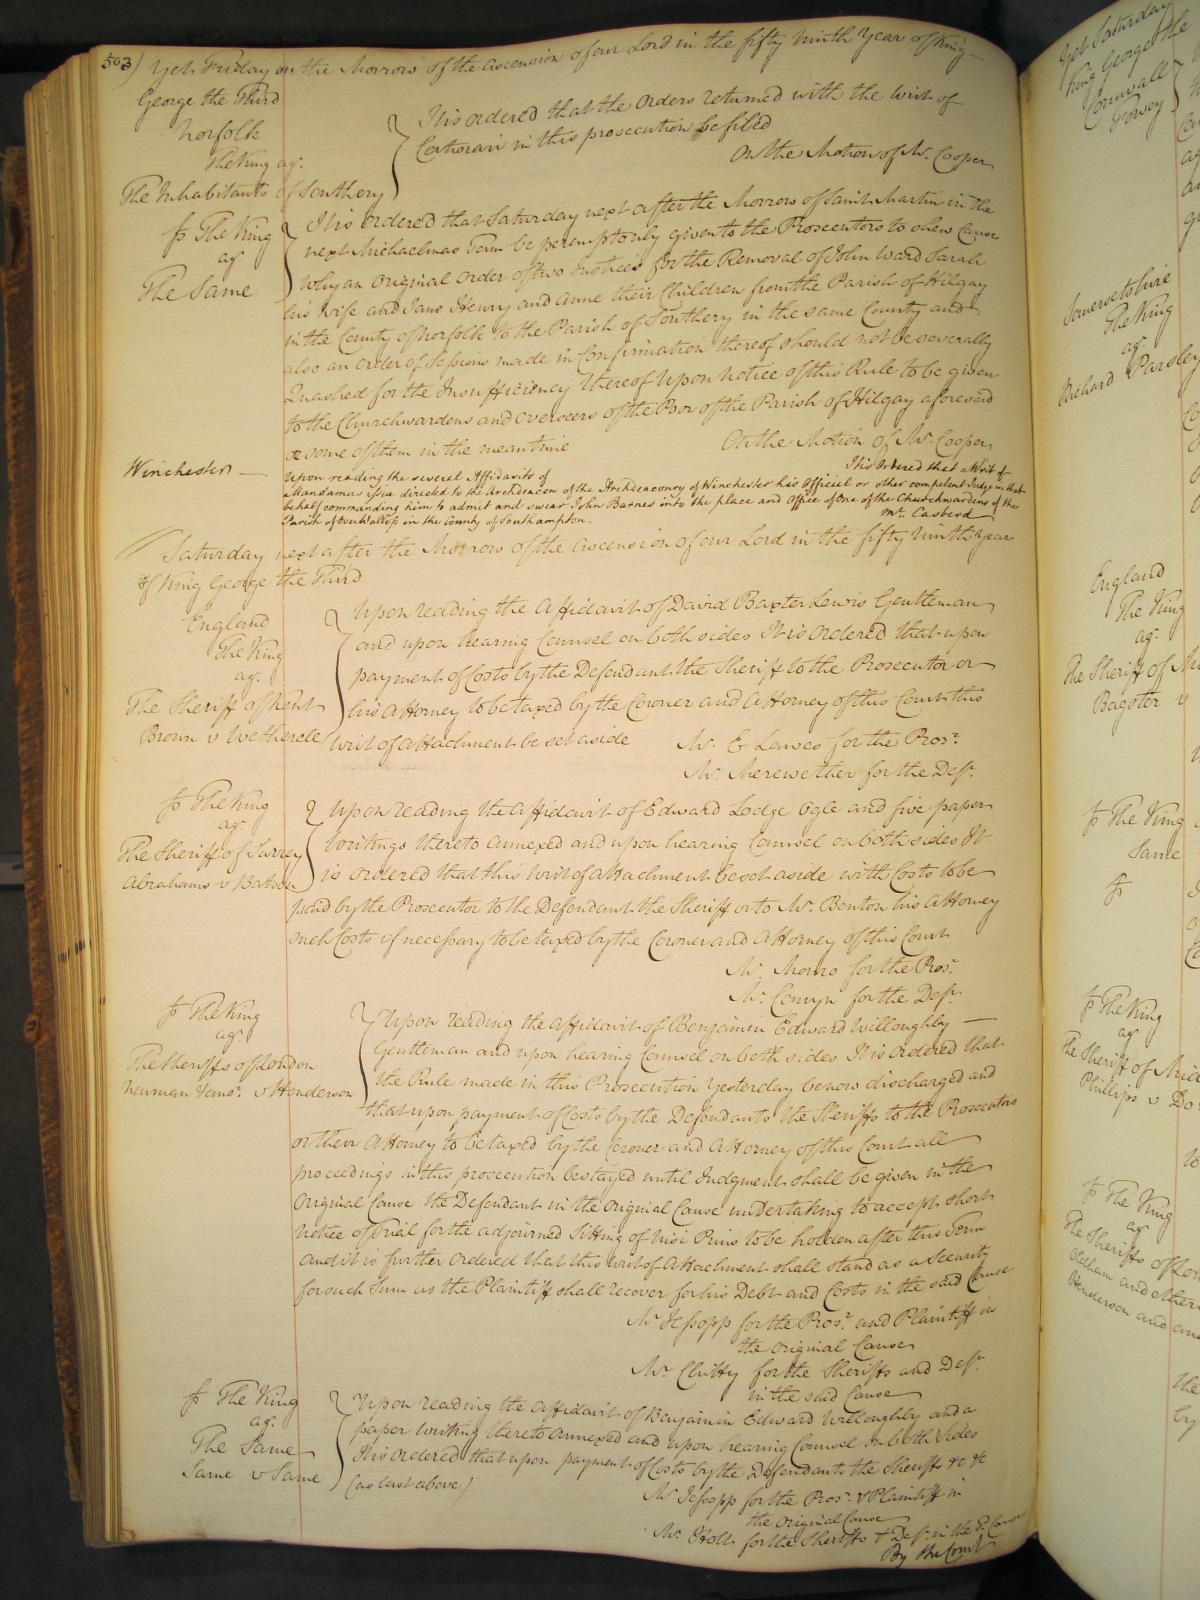 503) Yet Friday on the Morrow of the Ascension of our Lord in the fifty ninth Year of King
George the Third
Norfolk
The King agt.
The Inhabitants of Southery
It is ordered that the Orders returned with the Writ of
Certiorari in this prosecution be filed
On the Motion of Mr. Cooper
The King
agt
The Same
It is ordered that Saturday next after the Morrow of Saint Martin in the
next Michaelmas Term be peremptorily given to the Prosecutors to shew Cause
why an Original Order of two Justices for the Removal of John Ward Sarah
his Wife and Jane Henry and Anne their Children from the Parish of Hilgay
in the County of Norfolk to the Parish of Southery in the same County and
also an Order of Sessions made in Confirmation thereof should not be severally
Quashed for the Insufficiency thereof Upon Notice of this Rule to be given
to the Churchwardens and Overseers of the Poor of the Parish of Hilgay aforesaid
or some of them in the meantime
On the Motion of Mr. Cooper
Winchester
Upon reading the several Affidavits of
It is Ordered that a Writ of
Mandamus issue directed to the Archdeacon of the Archdeaconry of Winchester his Official or other competent Judge in that
behalf commanding him to admit and swear John Barnes into the place and Office of One of the Churchwardens of the
Parish of Wallop in the County of Southampton.
Mr. Casberd
Saturday next after the Morrow of the Ascension of our Lord in the fifty ninth Year
of King George the Third
England
The King
agt.
The Sheriff of Kent
Brown v Wetherele
Upon reading the Affidavit of David Baxter Lewis Gentleman
and upon hearing Counsel on both sides It is Ordered that upon
payment of Costs by the Defendant the Sheriff to the Prosecutor or
his Attorney to be taxed by the Coroner and Attorney of this Court this
Writ of Attachment be set aside
Mr. E Lawes for the Prosr.
Mr. Merewether for the Deft.
The King
agt.
The Sheriff of Surrey
Abrahams v Batson
Upon reading the Affidavit of Edward Lodge Ogle and five paper
Writings thereto annexed and upon hearing Counsel on both sides It
is ordered that this Writ of Attachment be set aside with Costs to be
paid by the Prosecutor to the Defendant the Sheriff or to Mr. Benton his Attorney
such Costs if necessary to be taxed by the Coroner and Attorney of this Court
Mr. Monro for the Prosr.
Mr. Comyn for the Deft.
The King
agt.
The Sheriffs of London
Newman & anor. v Henderson
Upon reading the Affidavit of Benjamin Edward Willoughby
Gentleman and upon hearing Counsel on both sides It is Ordered that
the Rule made in this Prosecution Yesterday be now discharged and
that upon payment of Costs by the Defendants the Sheriffs to the Prosecutors
or their Attorney to be taxed by the Coroner and Attorney of this Court all
proceedings in this prosecution be stayed until Judgment shall be given in the
Original Cause the Defendant in the Original Cause undertaking to accept short
Notice of Trial for the adjourned Sitting of Nisi Prius to be holden after this Term
And it is further Ordered that this Writ of Attachment shall stand as a Security
for such Sum as the Plaintiff shall recover for his Debt and Costs in the said Cause
Mr. Jessopp for the Prosr. and Plaintiff in
the Original Cause
Mr. Chitty for the Sheriffs and Deft.
in the said Cause
The King
agt.
The Same
Same v Same
Upon reading the Affidavit of Benjamin Edward Willoughby and a
paper Writing thereto annexed and upon hearing Counsel on both Sides
It is Ordered that upon payment of Costs by the Defendants the Sheriffs &c &c
(as last above)
Mr. Jessopp for the Prosr. & Plaintiff in
the Original Cause
Mr. Holt for the Sheriffs & Deft. in the sd. Cause
By the Court
Yet Saturday
King George the
Cornwall
Fowey
Somersetshire
The King
agt.
Richard Parsley
England
The King
agt.
The Sheriff of
Bagster v
The King
Same
The King
agt
The Sheriff of
Phillips v
The King
agt.
The Sheriffs of
Oldham and
Henderson and